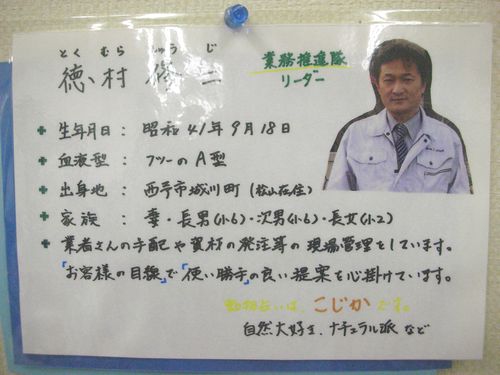 とくむら しゅうじ
徳村 修二
業務推進隊
リーダー
生年月日 : 昭和41年9月18日
血液型 : フツーのA型
出身地 : 西予市城川町 (松山在住)
家族 : 妻・長男(小6)・次男(小6)・長女(小2)
業者さんの手配や資材の発注等の現場管理をしています。
「お客様の目線」で「使い勝手」の良い提案を心掛けています。
動物占いは、こじかです。
自然大好き、ナチュラル派 など